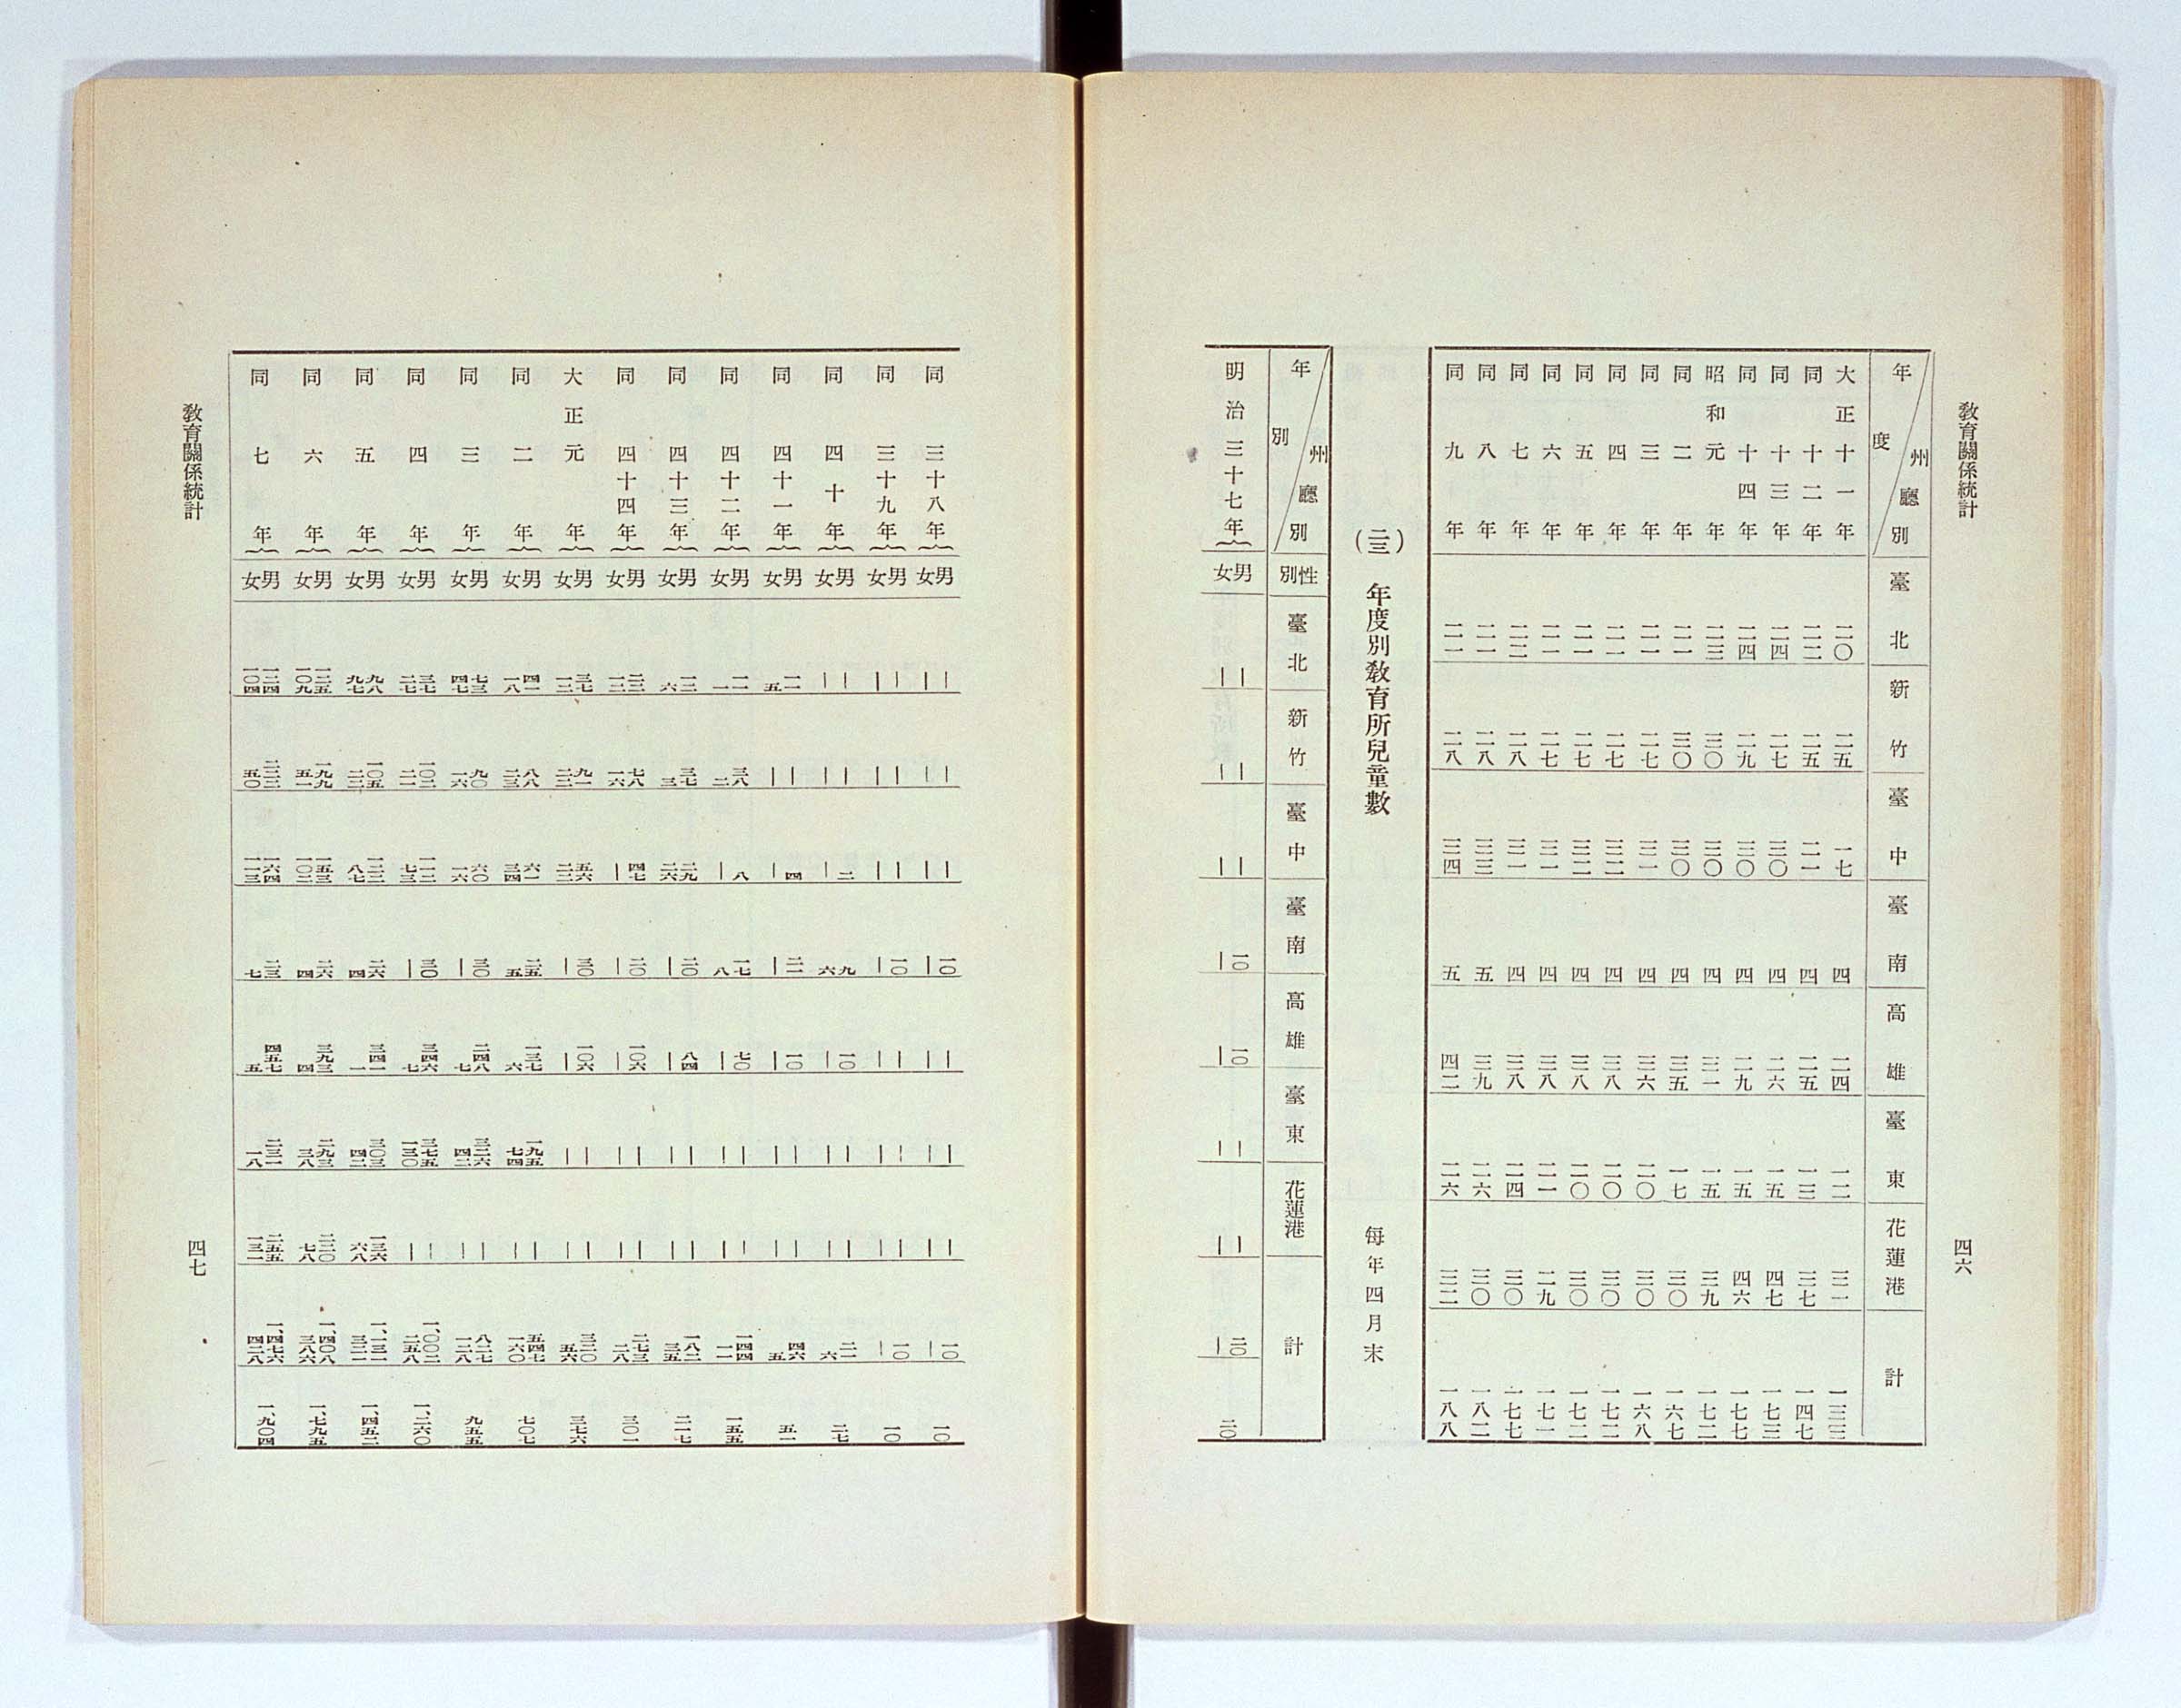 教育關係統計　四六
年度　州廳別　臺北　新竹　臺中　臺南　高雄　臺東　花蓮港　計
大正十一年　二〇　二五　一七　四　二四　一二　三一　一三三
同十二年　二二　二五　二一　四　二五　一三　三七　一四七
同十三年　二四　二七　三〇　四　二六　一五　四七　一七三
同十四年　二四　二九　三〇　四　二九　一五　四六　一七七
昭和元年　二三　三〇　三〇　四　三一　一五　三九　一七二
同二年　二一　三〇　三〇　四　三五　一七　三〇　一六七
同三年　二一　二七　三一　四　三六　二〇　三〇　一六八
同四年　二一　二七　三二　四　三八　二〇　三〇　一七二
同五年　二一　二七　三二　四　三八　二〇　三〇　一七二
同六年　二一　二七　三一　四　三八　二一　二九　一七一
同七年　二二　二八　三一　四　三八　二四　三〇　一七七
同八年　二一　二八　三三　五　三九　二六　三〇　一八二
同九年　二一　二八　三四　五　四二　二六　三二　一八八
(二三)　年度別教育所兒童數　每年四月末
年別　州廳別　性別　臺北　新竹　臺中　臺南　高雄　臺東　花蓮港　計
明治三十七年　男　｜　｜　｜　一〇　一〇　｜　｜　二〇
女　｜　｜　｜　｜　｜　｜　｜　｜　二〇
同三十八年　男　｜　｜　｜　一〇　｜　｜　｜　一〇
女　｜　｜　｜　｜　｜　｜　｜　｜　一〇
同三十九年　男　｜　｜　｜　一〇　｜　｜　｜　一〇
女　｜　｜　｜　｜　｜　｜　｜　｜　一〇
同四十年　男　｜　｜　二　九　一〇　｜　｜　二一
女　｜　｜　｜　六　｜　｜　｜　六　二七
同四十一年　男　一一　｜　四　二一　一〇　｜　｜　四六
女　五　｜　｜　｜　｜　｜　｜　五　五一
同四十二年　男　一一　三八　八　一七　七〇　｜　｜　一四四
女　一　二　｜　八　｜　｜　｜　一一　一五五
同四十三年　男　一二　三七　二九　二〇　八四　｜　｜　一八二
女　六　三　二六　｜　｜　｜　｜　三五　二一七
同四十四年　男　二二　七八　四七　二〇　一〇六　｜　｜　二七三
女　一二　一六　｜　｜　｜　｜　｜　二八　三〇一
大正元年　男　三七　九一　五六　三〇　一〇六　｜　｜　三二〇
女　一二　二二　二二　｜　｜　｜　｜　五六　三七六
同二年　男　四一　八八　六一　二五　一三七　一九五　｜　五四七
女　一八　二三　三四　五　六　七四　｜　一六〇　七〇七
同三年　男　七三　九〇　六〇　三〇　二四八　三二六　｜　八二七
女　四七　一六　一六　｜　七　四二　｜　一二八　九五五
同四年　男　三七　一〇二　一一二　三〇　三四六　三七五　｜　一、〇〇二
女　二七　二一　七三　｜　七　一三〇　｜　二五八　一、二六〇
同五年　男　九八　一〇五　一二二　二六　三四一　三〇三　一三六　一、一三一
女　九七　二二　八七　四　一　四二　六八　三二一　一、四五二
同六年　男　一二五　一九九　一五三　二六　三九三　二九三　二二〇　一、四〇八
女　一〇九　五一　一〇二　四　四　三八　七八　三八六　一、七九五
同七年　男　一二四　二二二　一六四　二三　四五七　二三一　二五五　一、四七六
女　一〇四　五〇　一一三　七　五　一八　一三一　四二八　一、九〇四
教育關係統計　四七